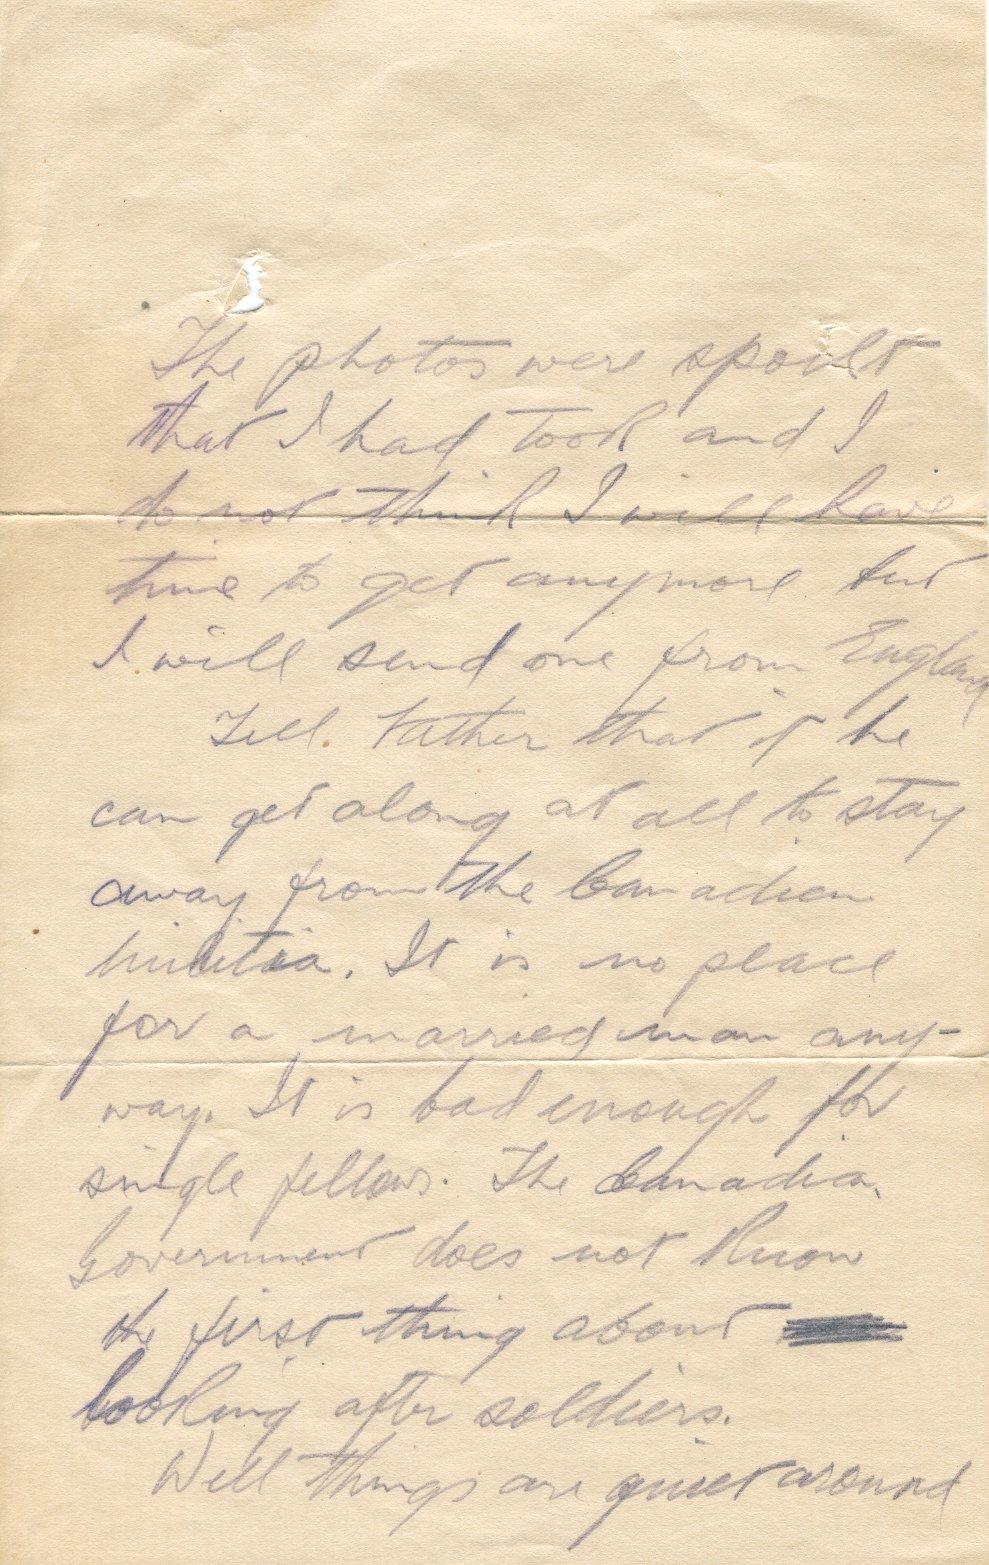 The photos were spoilt
that I had took and I
do not think I will have
time to get anymore but
I will send one from England
Tell Father that if he
can get along at all to stay
away from the Canadian
Militia. It is no place
for a married man any-
way. It is bad enough for
single fellows. The Canadia
Government does not know
the first thing about
looking after soldiers.
Well things are quiet around